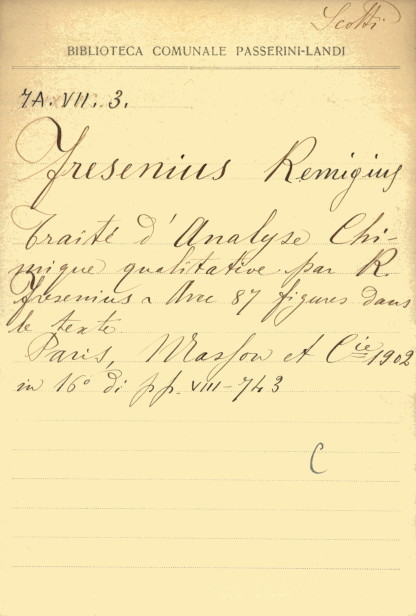 Scotti
BIBLIOTECA COMUNALE PASSERINI-LANDI
7A. VII. 3.
Fresenius Remigius
Traité d'Analyse Chi-
mique qualitative par R.
Fresenius ~ Avec 87 figures dans
le texte
Paris, Masson et Cie 1902
in 16º di pp. VIII-743
C